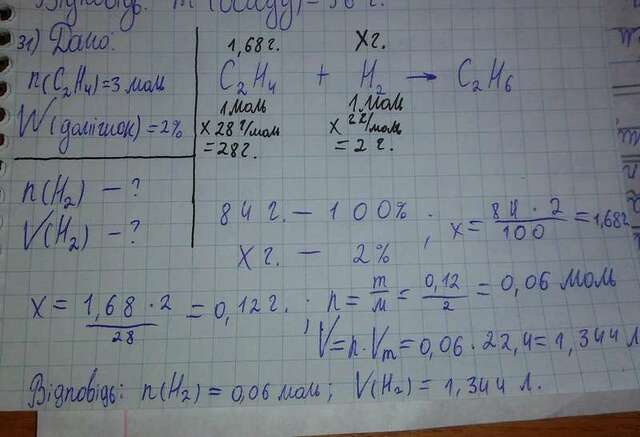 Відповідь: m (осаду) = 50 г.
31) Дано:
n(C₂H₄)=3 моль
W(домішок)=2%
n(H₂) – ?
V(H₂) – ?
1,68г. Xг.
C₂H₄ + H₂ → C₂H₆
1моль 1 моль
x 28 г/моль x 2г/моль
=28г. =2г.
84г. – 100% ; x = 84·2/100 = 1,68г
Xг. – 2%
X = 1,68·2/28 = 0,12г. ; n = m/M = 0,12/2 = 0,06 моль
V=n·Vm=0,06·22,4=1,344 л
Відповідь: n(H₂) = 0,06 моль; V(H₂) = 1,344 л.